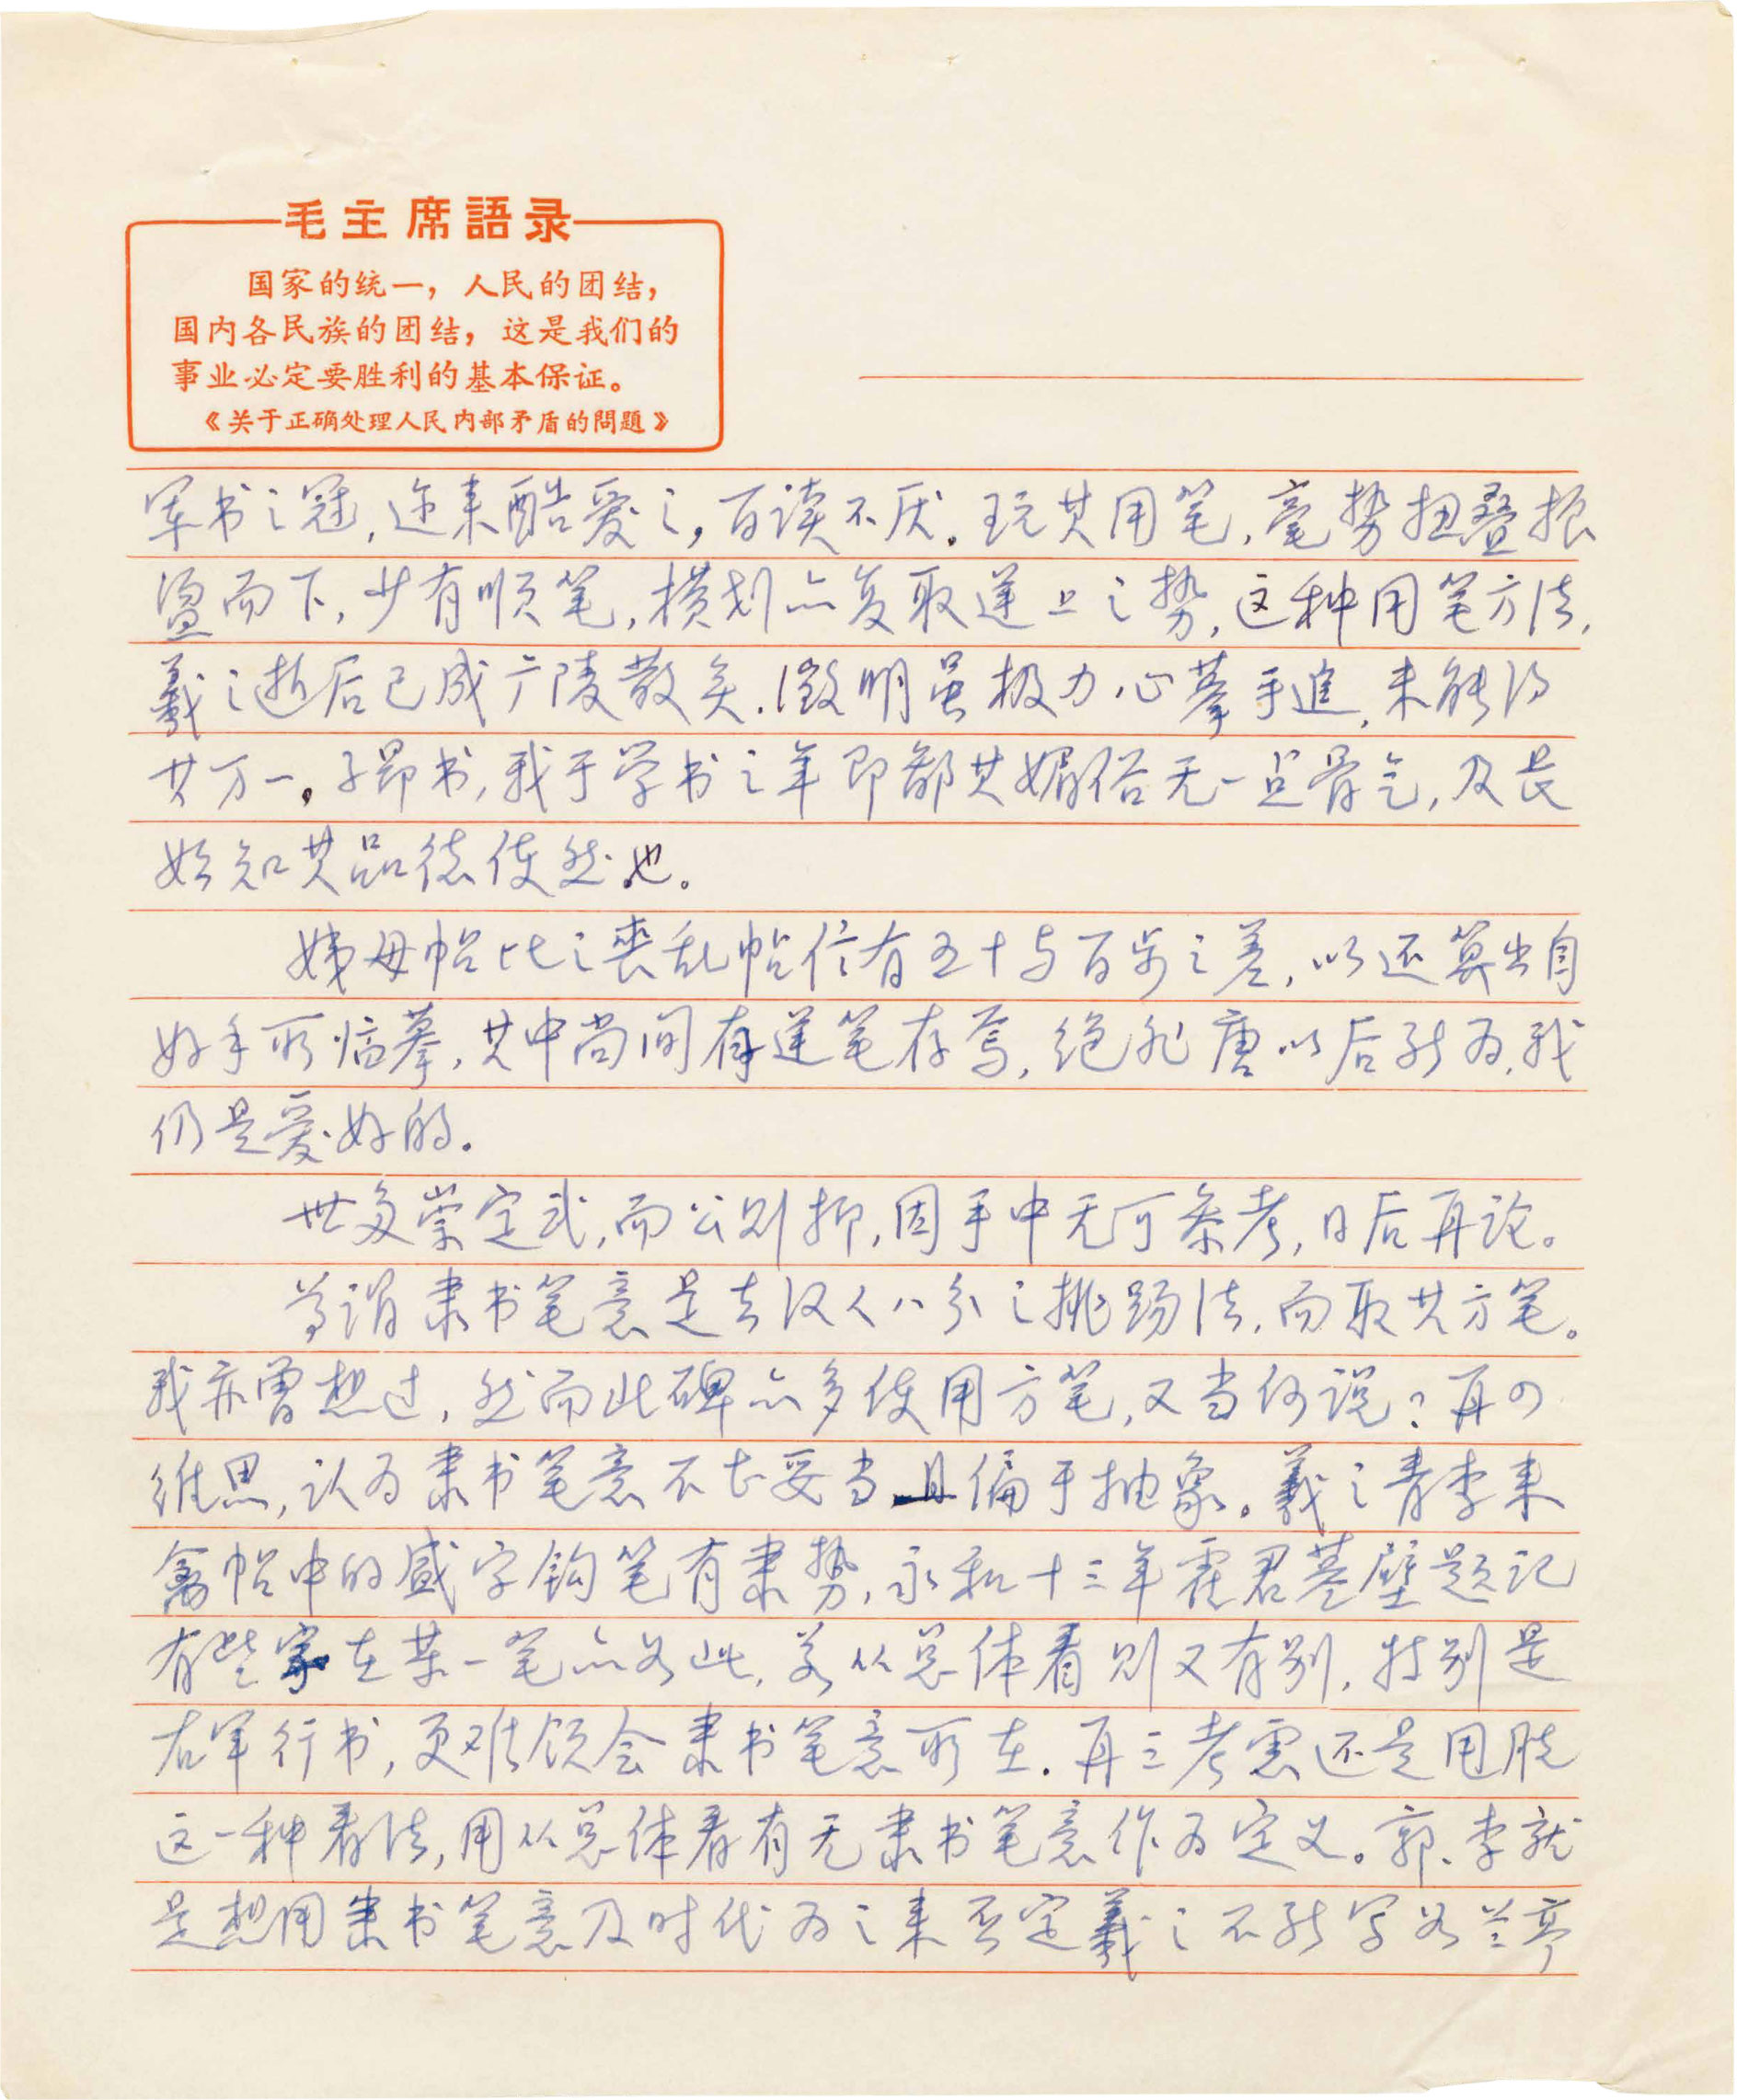 毛主席語录
国家的统一，人民的团结，
国内各民族的团结，这是我们的
事业必定要胜利的基本保证。
《关于正确处理人民内部矛盾的問題》
军书之冠，迩来酷爱之，百读不厌。玩其用笔，毫势扭叠振
盪而下，少有顺笔，横划亦复取逆上之势，这种用笔方法，
羲之逝后已成广陵散矣。徵明虽极力心摹手追，未能得
其万一。子昂书，我于学书之年即鄙其媚俗无一点骨气，及长
始知其品德使然也。
姨母帖比之丧乱帖信有五十与百步之差，以还算出自
好手所临摹，其中尚间有逆笔存焉，绝非唐以后能为，我
仍是爱好的。
世多崇定武，而公则抑，因手中无可参考，日后再论。
普谓隶书笔意是去汉人八分之挑踢法，而取其方笔。
我亦曾想过，然而此碑亦多使用方笔，又当何说？再四
维思，认为隶书笔意不太妥当且偏于抽象。羲之青李来
禽帖中的盛字钩笔有隶势，永和十三年霍君墓壁题记
有些字在某一笔亦如此，若从总体看则又有别，特别是
右军行书，更难领会隶书笔意所在。再三考虑还是甩脱
这一种看法，用从总体看有无隶书笔意作为定义。郭、李就
是想用隶书笔意及时代为之来否定羲之不能写如兰亭